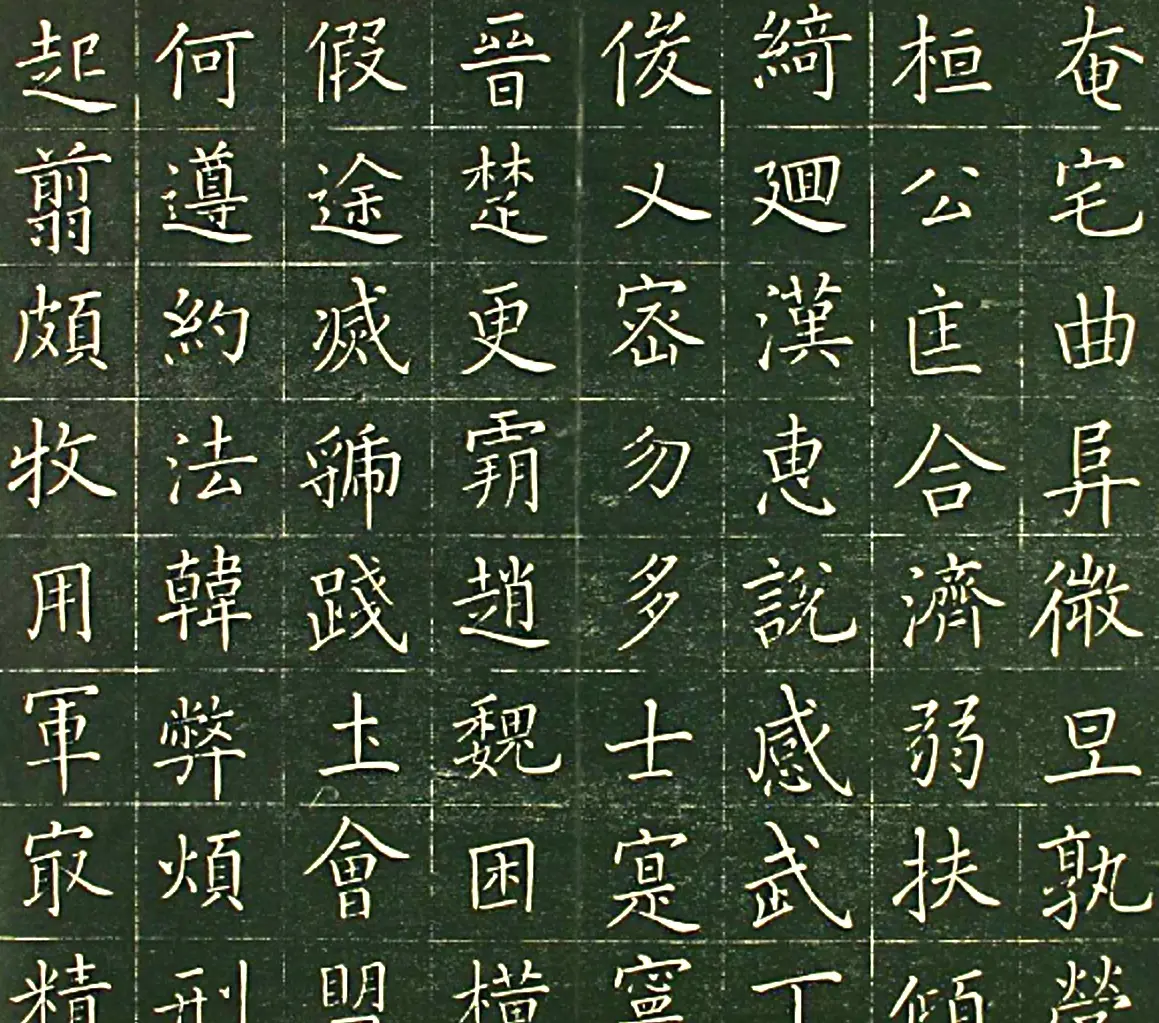 奄宅曲阜微旦孰營
桓公匡合濟弱扶傾
綺迴漢恵說感武丁
俊乂密勿多士寔寧
晉楚更霸趙魏困橫
假途滅虢踐土會盟
何遵約法韓弊煩刑
起翦頗牧用軍最精